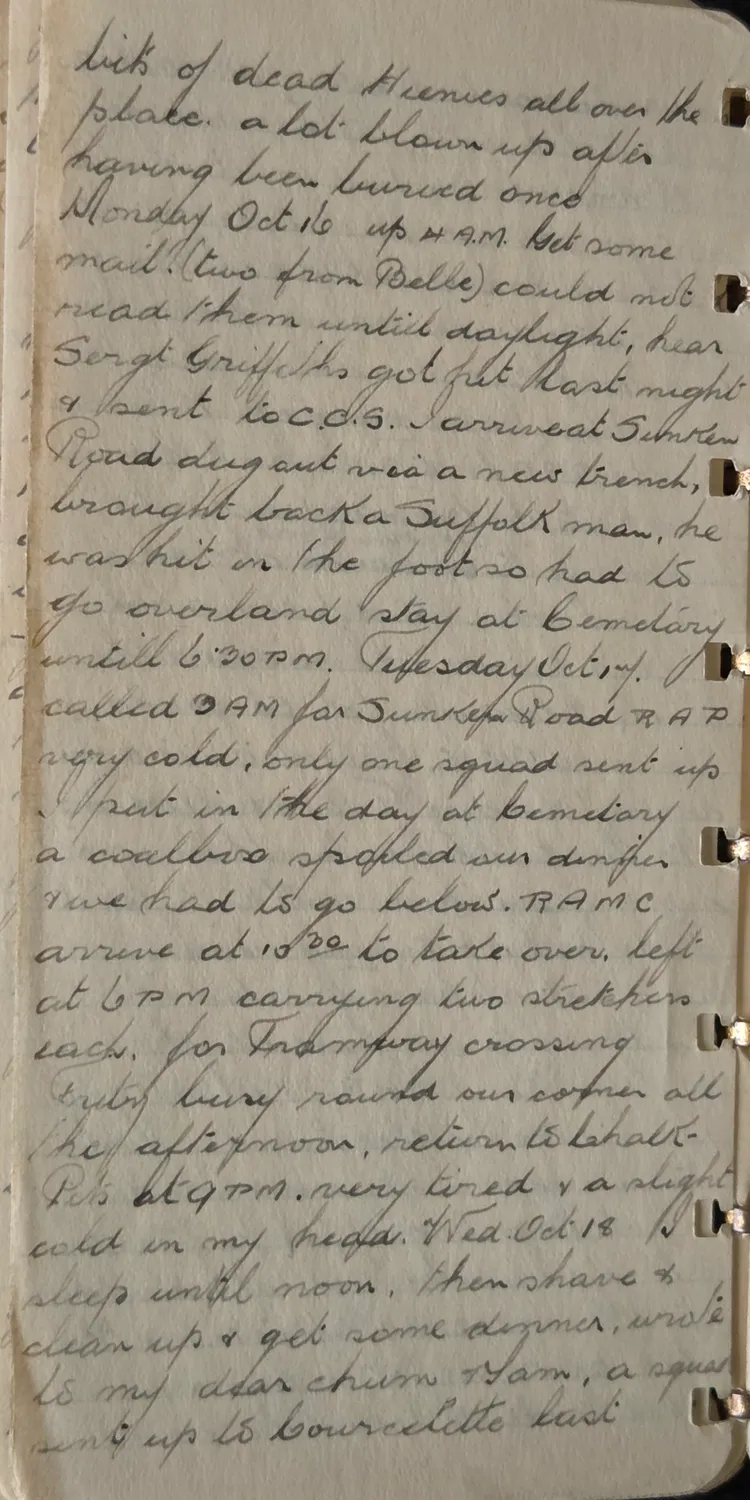 bits of dead Hienies all over the
place. a lot blown up after
having been buried once
Monday Oct 16 up 4 A.M. Get some
mail. (two from Belle) could not
read them untill daylight, hear
Sergt Griffiths got hit last night
& sent to C.C.S. I arrive at Sunken
Road dugout via a new trench,
brought back a Suffolk man, he
was hit in the foot so had to
go overland stay at Cemetary
untill 6.30 P.M. Tuesday Oct 17.
called 3 AM for Sunken Road R A P
very cold, only one squad sent up
I put in the day at Cemetary
a coalbox spoiled our dinner
& we had to go below. R A M C
arrive at 10 30 to take over. left
at 6 P M carrying two stretchers
each. for Tramway crossing
Fritz busy round our corner all
the afternoon, return to Chalk-
Pits at 9 P.M. very tired & a slight
cold in my head. Wed. Oct 18 I
sleep until noon, then shave &
clean up & get some dinner, wrote
to my dear chum, a squad
sent up to Courcelette last